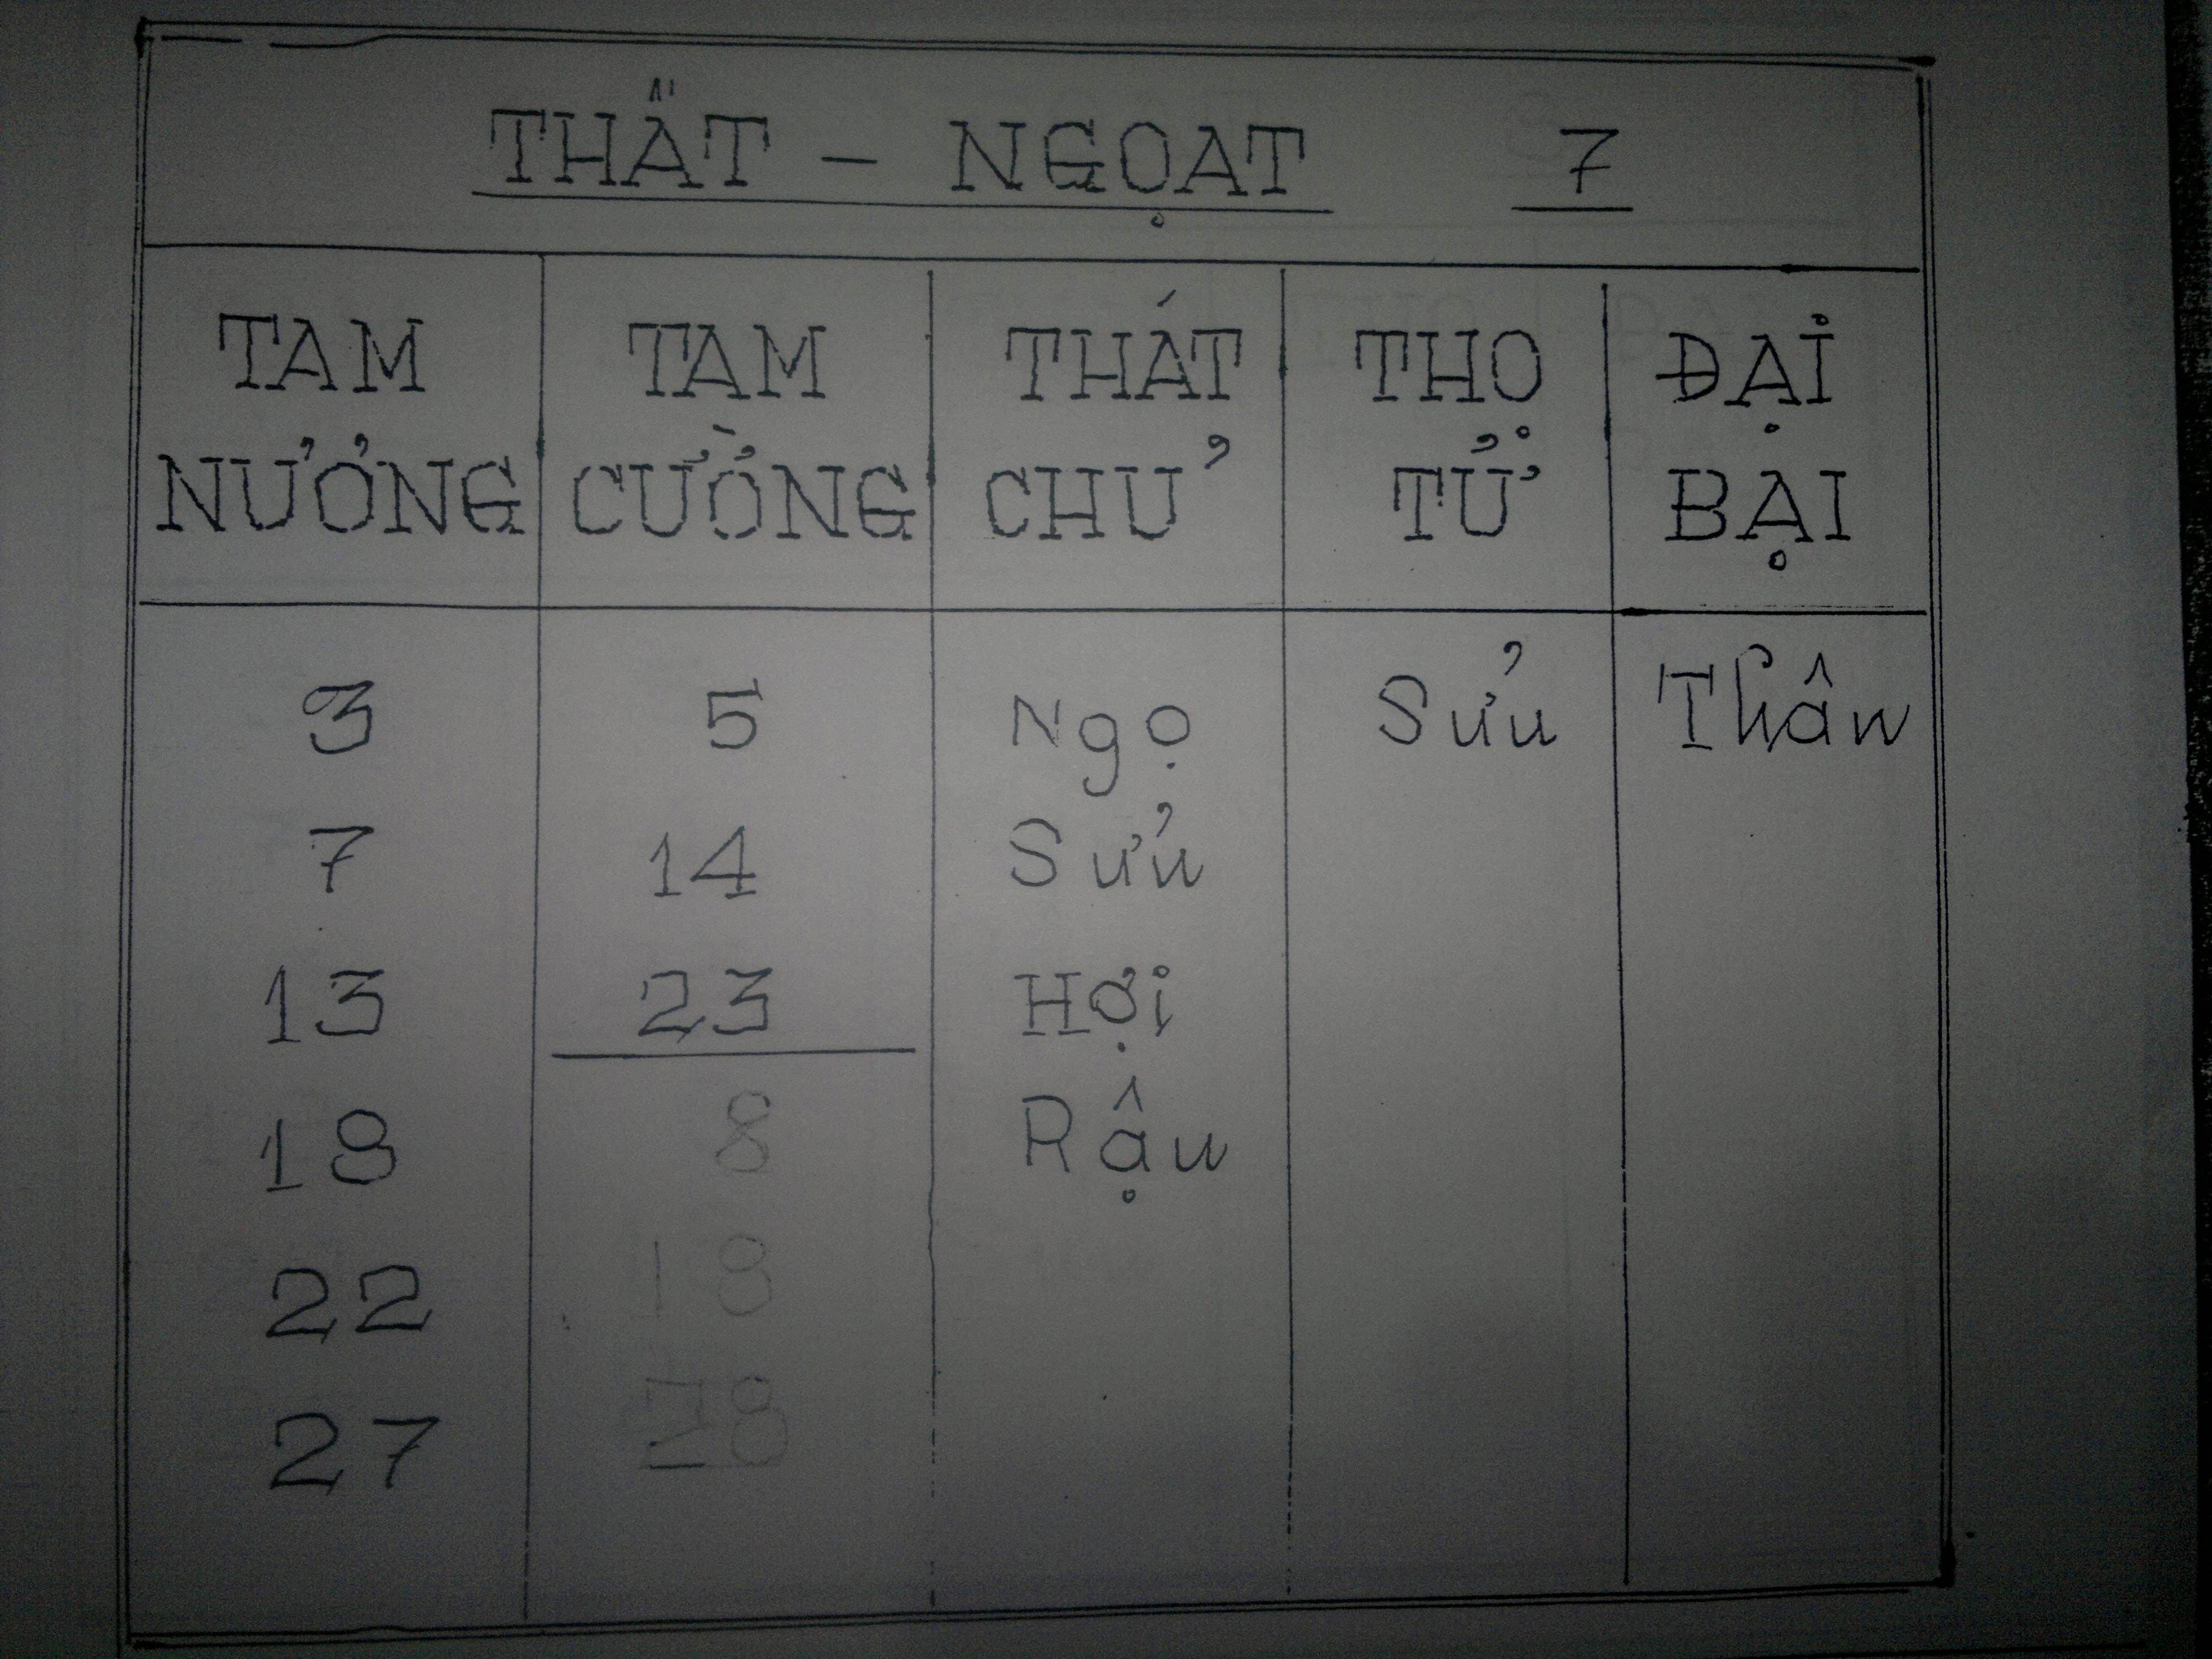 THẤT - NGOẠT 7
TAM NƯƠNG
TAM CƯỜNG
THÁT CHỦ
THO TỬ
ĐẠI BẠI
3 5 Ngọ Sửu Thân
7 14 Sửu
13 23 Hợi
18 8 Rậu
22 18
27 28